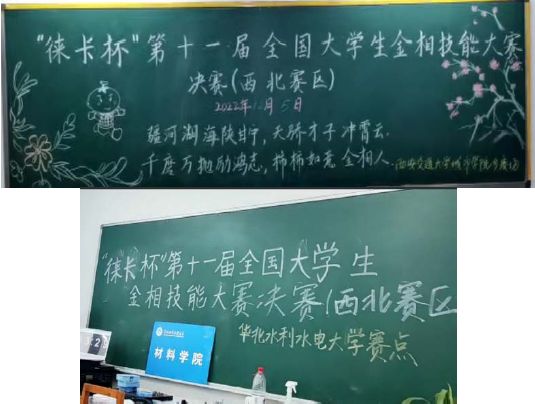 "徕卡杯"第十一届全国大学生金相技能大赛
决赛(西北赛区)
2022年12月5日
疆河湖海陕甘宁，天骄才子冲霄云.
千磨万抛励鸿志，柿柿如意金相人.
西安交通大学城市学院分赛场
"徕卡杯"第十一届全国大学生
金相技能大赛决赛(西北赛区
华北水利水电大学赛点
材料学院